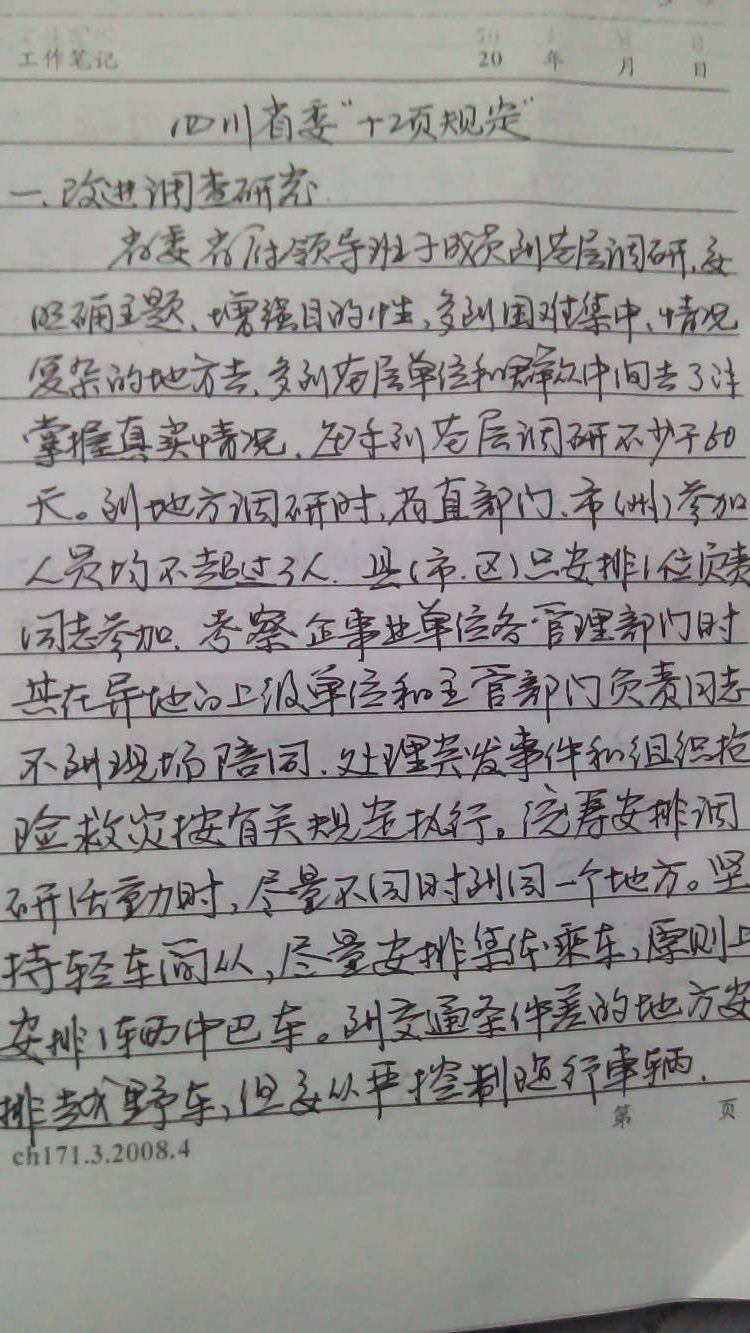 工作笔记 20 年 月 日
四川省委“十2项规定”
一.改进调查研究
省委省府领导班子成员到基层调研,要
明确主题、增强目的性,多到困难集中、情况
复杂的地方去,多到基层单位和群众中间去了详
掌握真实情况,每年到基层调研不少于60
天。到地方调研时,省直部门、市(州)参加
人员均不超过3人.县(市.区)只安排1位负责
同志参加.考察企事业单位各管理部门时
其在异地的上级单位和主管部门负责同志
不到现场陪同.处理突发事件和组织抢
险救灾按有关规定执行。统筹安排调
研活动时,尽量不同时到同一个地方。坚
持轻车简从,尽量安排集体乘车,原则上
安排1辆中巴车。到交通条件差的地方安
排越野车,但要从严控制随行车辆.
第 页
ch171.3.2008.4